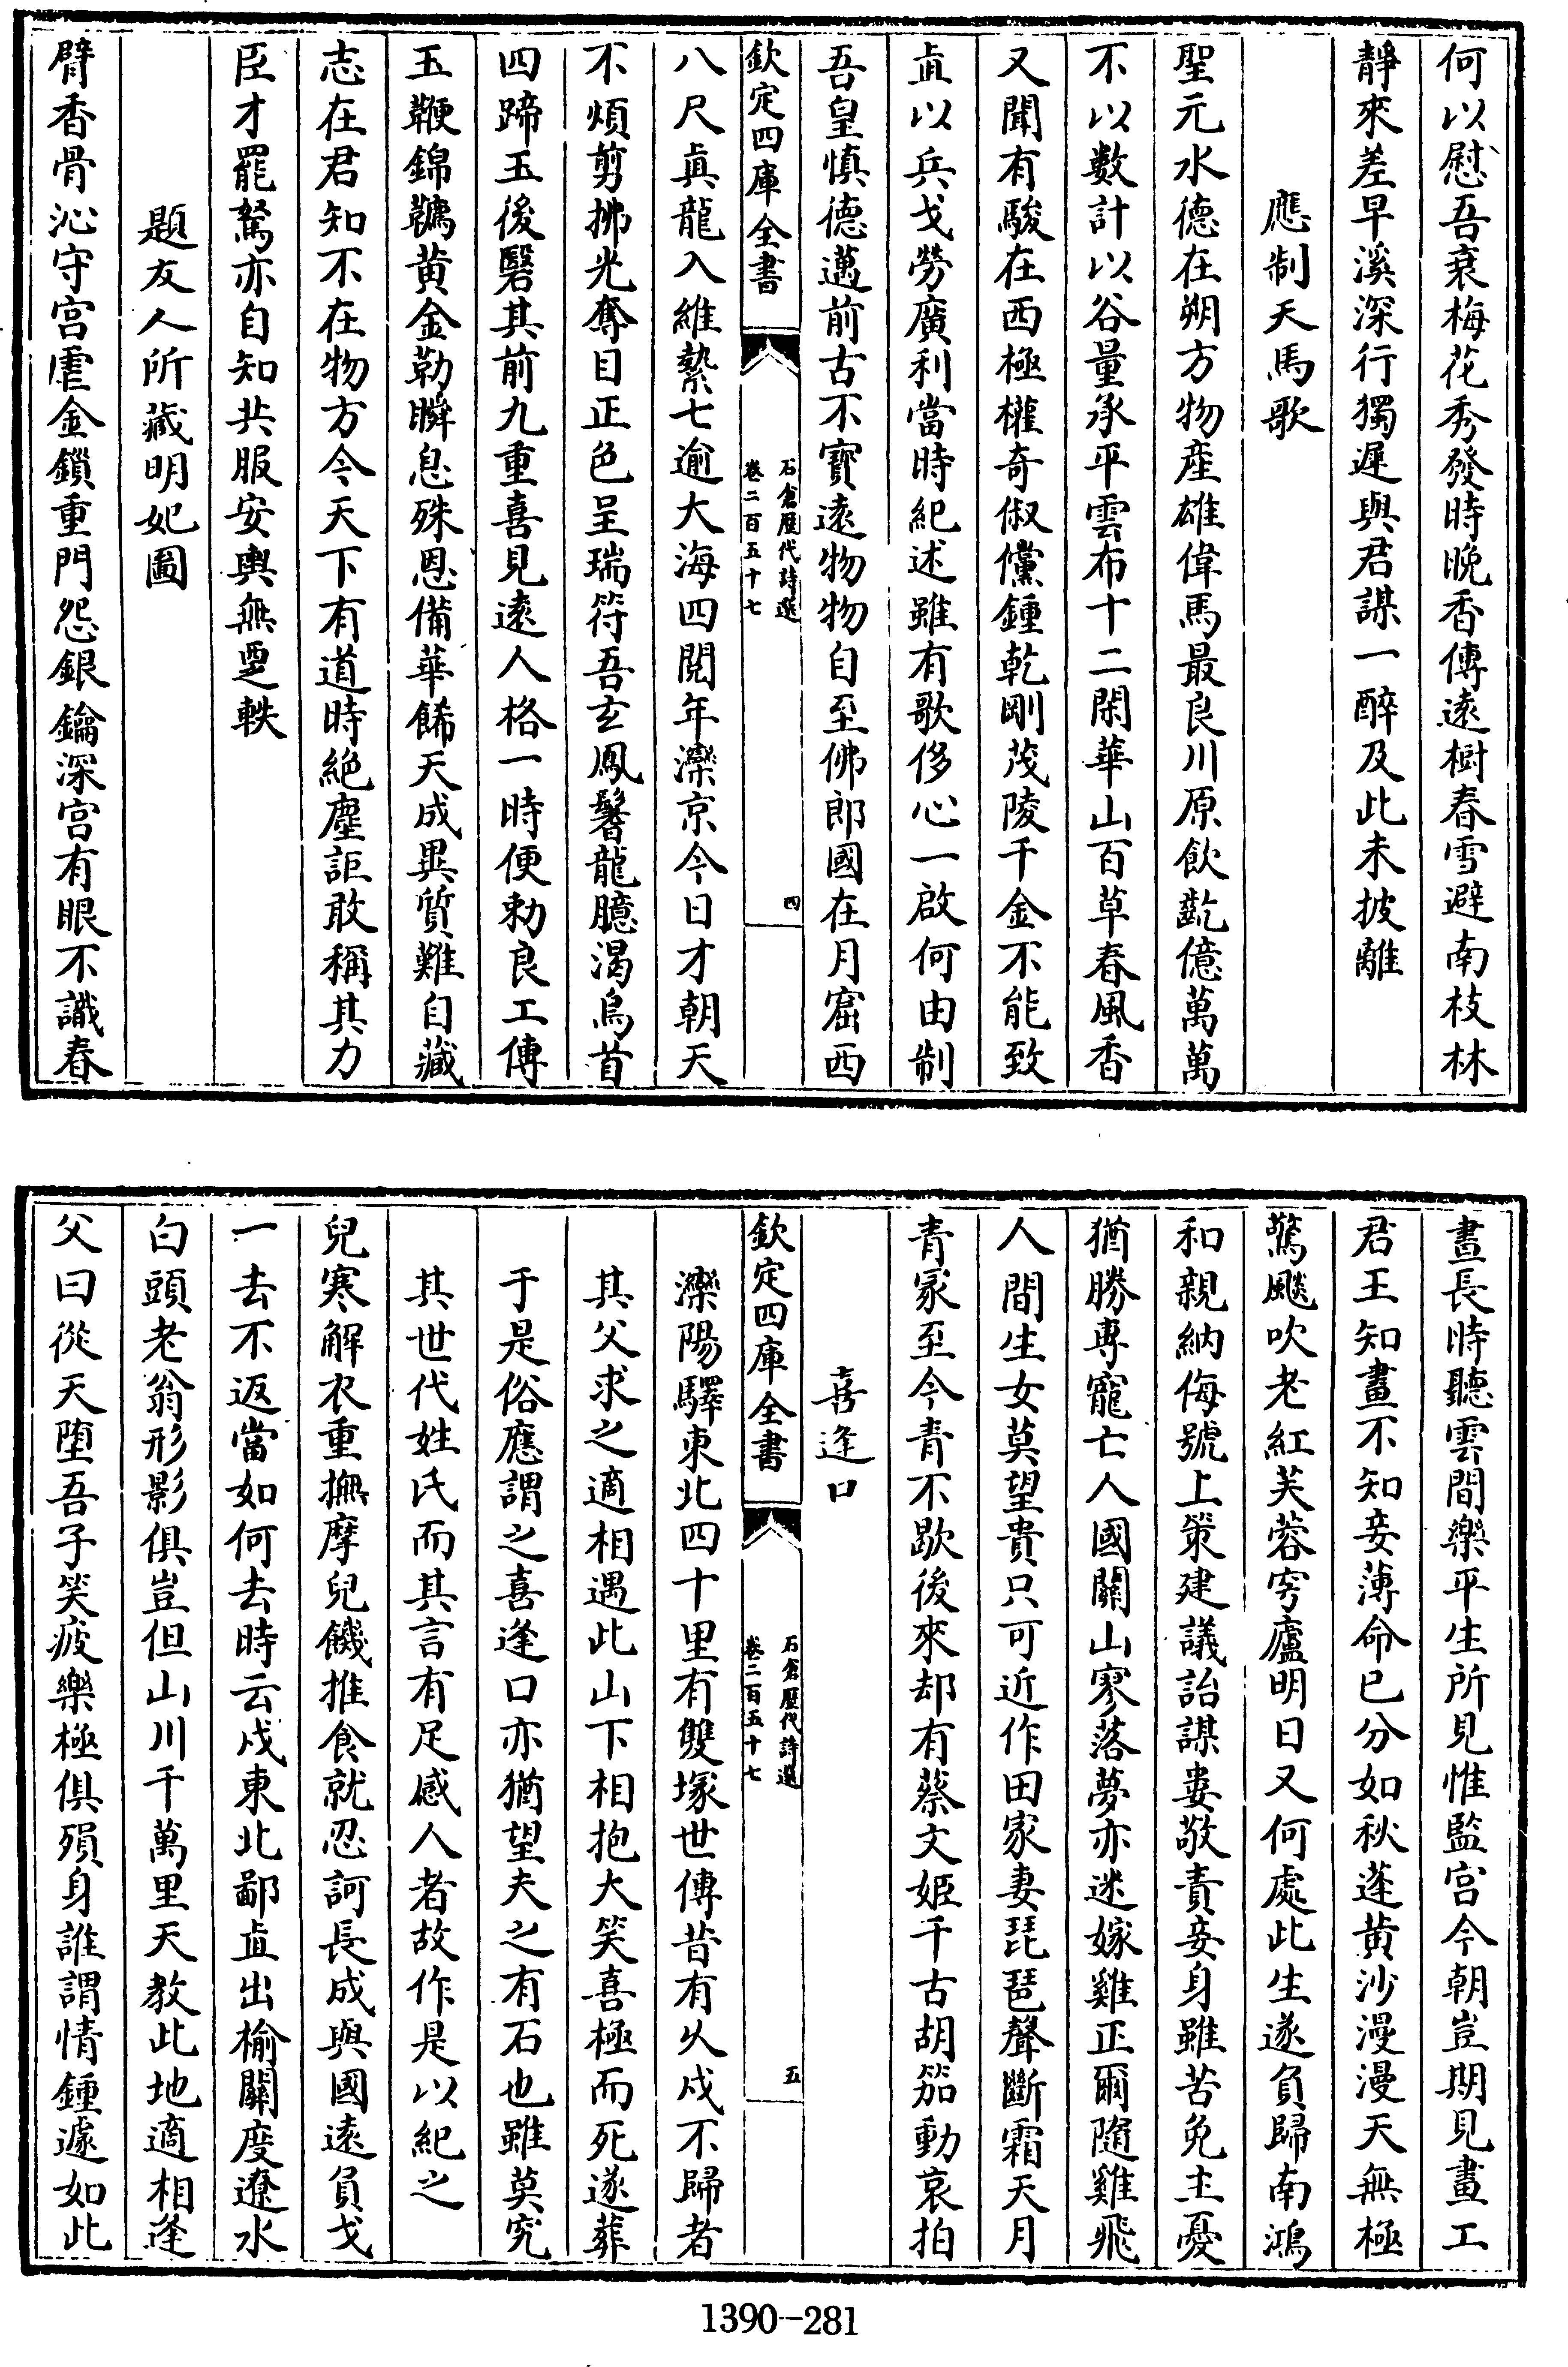 何以慰吾衰梅花秀發時晚香傳遠樹春雪避南枝林
靜來差早溪深行獨遲與君謀一醉及此未披離
應制天馬歌
聖元水德在朔方物産雄偉馬最良川原飲齕億萬萬
不以數計以谷量承平雲布十二閑華山百草春風香
又聞有駿在西極權奇俶儻鍾乾剛茂陵千金不能致
直以兵戈勞廣利當時紀述雖有歌侈心一啟何由制
吾皇慎德邁前古不寶遠物物自至佛郎國在月窟西
欽定四庫全書
石倉歷代詩選
卷二百五十七
四
八尺真龍入維縶七逾大海四閱年灤京今日才朝天
不煩剪拂光奪目正色呈瑞符吾玄鳳鬐龍臆渴烏首
四蹄玉後礐其前九重喜見遠人格一時便勅良工傳
玉鞭錦韉黄金勒瞬息殊恩備華餙天成異質難自藏
志在君知不在物方今天下有道時絶塵詎敢稱其力
臣才罷駑亦自知共服安輿無覂軼
題友人所藏明妃圖
臂香骨沁守宫虐金鎖重門怨銀鑰深宫有眼不識春
晝長時聽雲間樂平生所見惟監宫今朝豈期見畫工
君王知畫不知妾薄命已分如秋蓬黄沙漫漫天無極
驚飈吹老紅芙蓉穹廬明日又何處此生遂負歸南鴻
和親納侮號上策建議詒謀婁敬責妾身雖苦免主憂
猶勝專寵亡人國關山寥落夢亦迷嫁雞正爾隨雞飛
人間生女莫望貴只可近作田家妻琵琶聲斷霜天月
青冢至今青不歇後來却有蔡文姬千古胡笳動哀拍
喜逢口
欽定四庫全書
石倉歷代詩選
卷二百五十七
五
灤陽驛東北四十里有雙塚世傳昔有乆戍不歸者
其父求之適相遇此山下相抱大笑喜極而死遂葬
于是俗應謂之喜逢口亦猶望夫之有石也雖莫究
其世代姓氏而其言有足感人者故作是以紀之
兒寒解衣重撫摩兒饑推食就忍訶長成與國遠負戈
一去不返當如何去時云戍東北鄙直出榆關度遼水
白頭老翁形影俱豈但山川千萬里天教此地適相逢
父曰從天墮吾子笑疲樂極俱殞身誰謂情鍾遽如此
1390-281